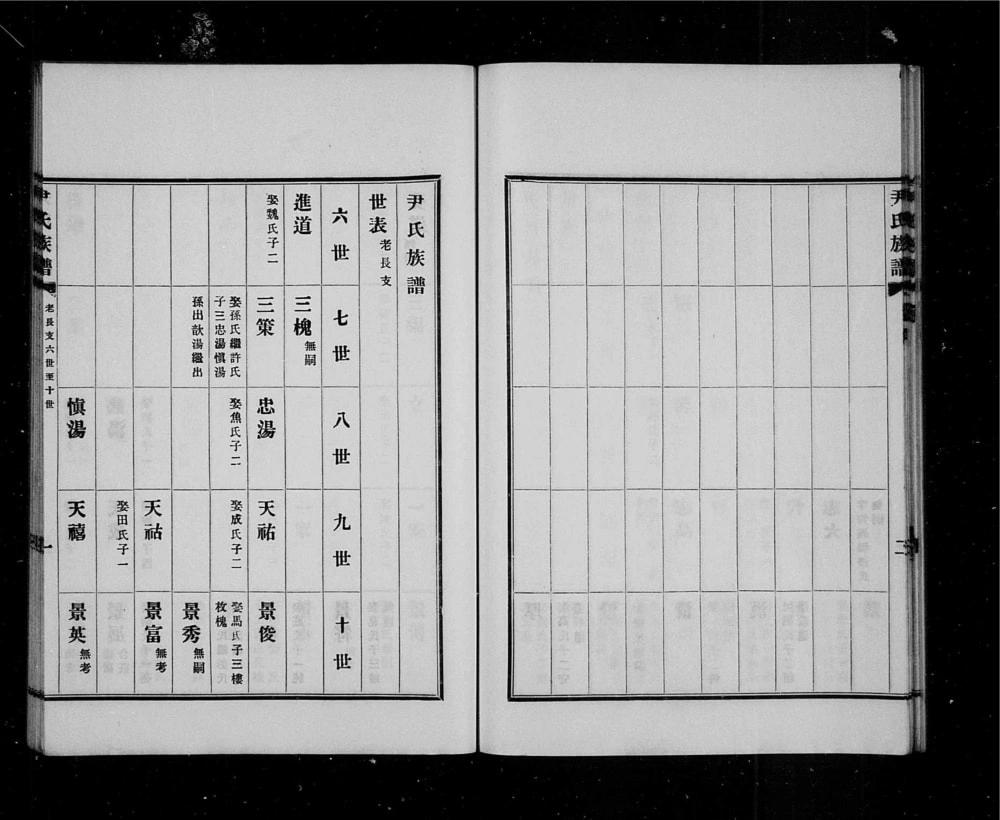 尹氏族譜
二
尹氏族譜
世表 老長支
六世
七世
八世
九世
十世
進道
娶魏氏子二
三槐 無嗣
三策
娶孫氏繼許氏
子三忠湯慎湯
孫出歆湯繼出
忠湯
娶魚氏子二
慎湯
天祐
娶成氏子二
天祜
娶田氏子一
天禧
景俊
娶馬氏子三樓
枚槐
景秀 無嗣
景富 無考
景英 無考
尹氏族譜
老長支六世至十世
一